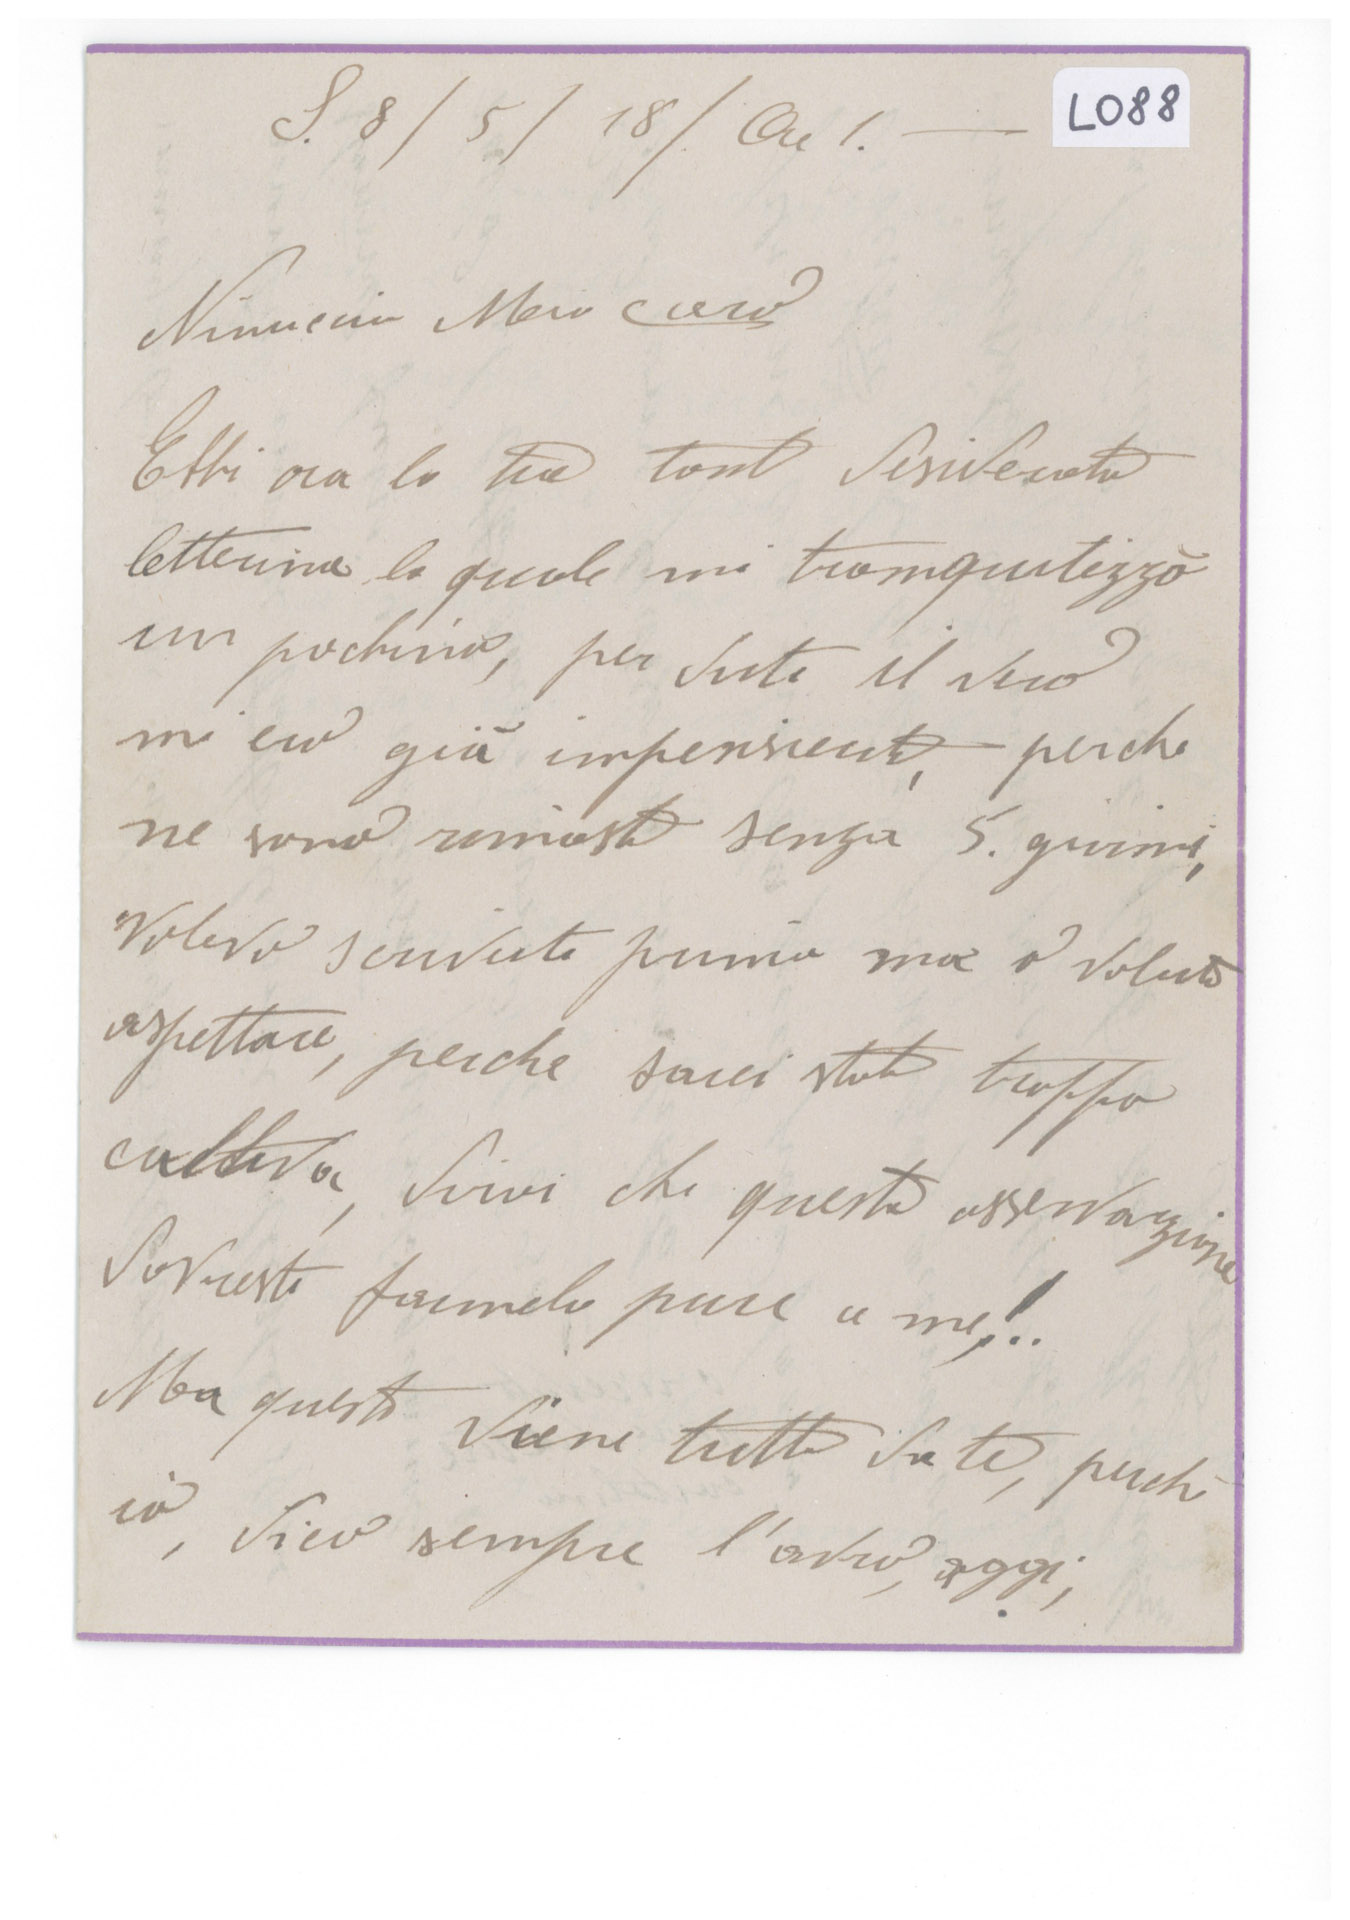 L088
S. 8/5/18/. Ore 1. —
Ninuccio Mio caro
Ebbi ora la tua tant desiderata
letterina la quale mi tranquilizzò
un pochino, per dirti il vero
mi ero già impensierita, perche
ne sono rimasta senza 5. giorni,
volevo scriverti prima ma ò voluto
aspettare, perche sarei stata troppo
cattiva, dirai che questa osservazione
dovresti farmela pure a me!..
Ma questo viene tutto da te, perchè
io, dico sempre l'avrò, oggi,